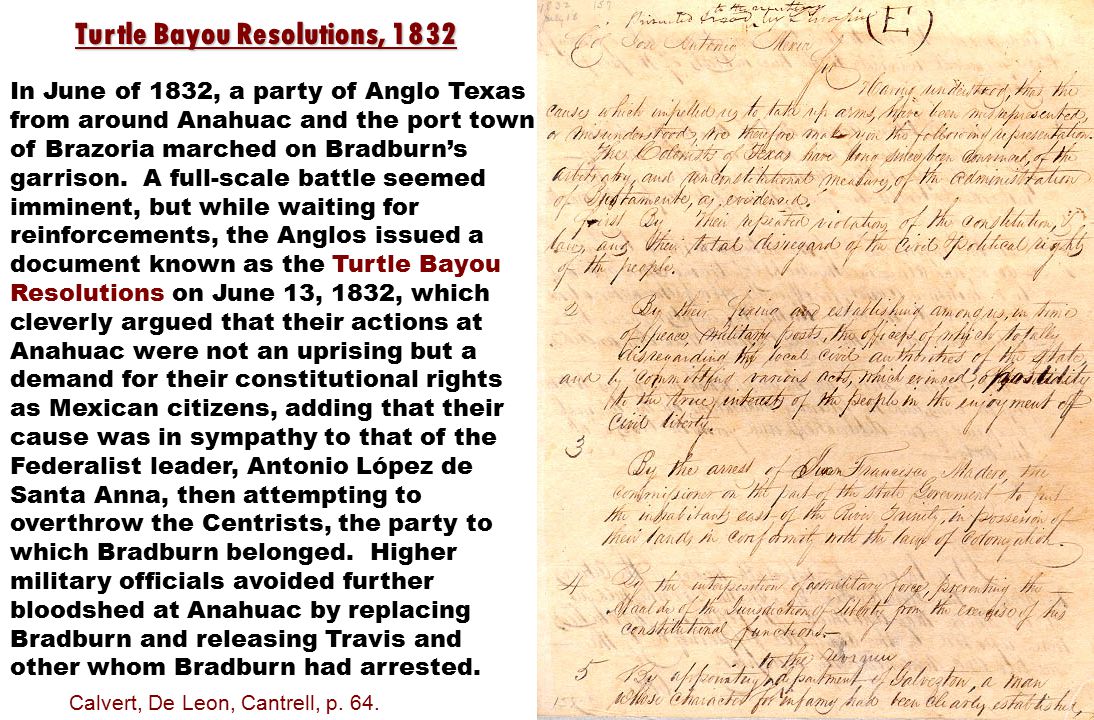 Turtle Bayou Resolutions, 1832
In June of 1832, a party of Anglo Texas
from around Anahuac and the port town
of Brazoria marched on Bradburn’s
garrison.  A full-scale battle seemed
imminent, but while waiting for
reinforcements, the Anglos issued a
document known as the Turtle Bayou
Resolutions on June 13, 1832, which
cleverly argued that their actions at
Anahuac were not an uprising but a
demand for their constitutional rights
as Mexican citizens, adding that their
cause was in sympathy to that of the
Federalist leader, Antonio López de
Santa Anna, then attempting to
overthrow the Centrists, the party to
which Bradburn belonged.  Higher
military officials avoided further
bloodshed at Anahuac by replacing
Bradburn and releasing Travis and
other whom Bradburn had arrested.
Calvert, De Leon, Cantrell, p. 64.
1832 157
July 18
to the
(E)
Col Jose Antonio Mexia
Sir
Having understood, that the
causes which impelled us to take up arms, have been misrepresented,
or misunderstood, we therefore make you the following representation.
The Colonists of Texas have long since been convinced, of the
arbitrary, and unconstitutional measures, of the administration
of Bustamente, as evidenced.
First By their repeated violations of the constitution, &
laws, and their total disregard of the civil & political rights
of the people.
2 By their fixing and establishing among us, in time
of peace military posts, the officers of which totally
disregarding the local civil authorities of the state
and by committing various acts, which evinced, opposition
to the true interests of the people in the enjoyment of
civil liberty.
3
By the arrest of Juan Francisco Madero, the
commissioner on the part of the state Goverment to put
the inhabitants east of the River Trinity, in possession of
their lands in conformity with the laws of Colonization.
4 By the interposition of a military force, preventing the
Alcalde of the Jurisdiction of liberty from the exercise of his
constitutional functions.
to the
5 By appointing department of Galveston, a man
whose character for infamy had been clearly established,